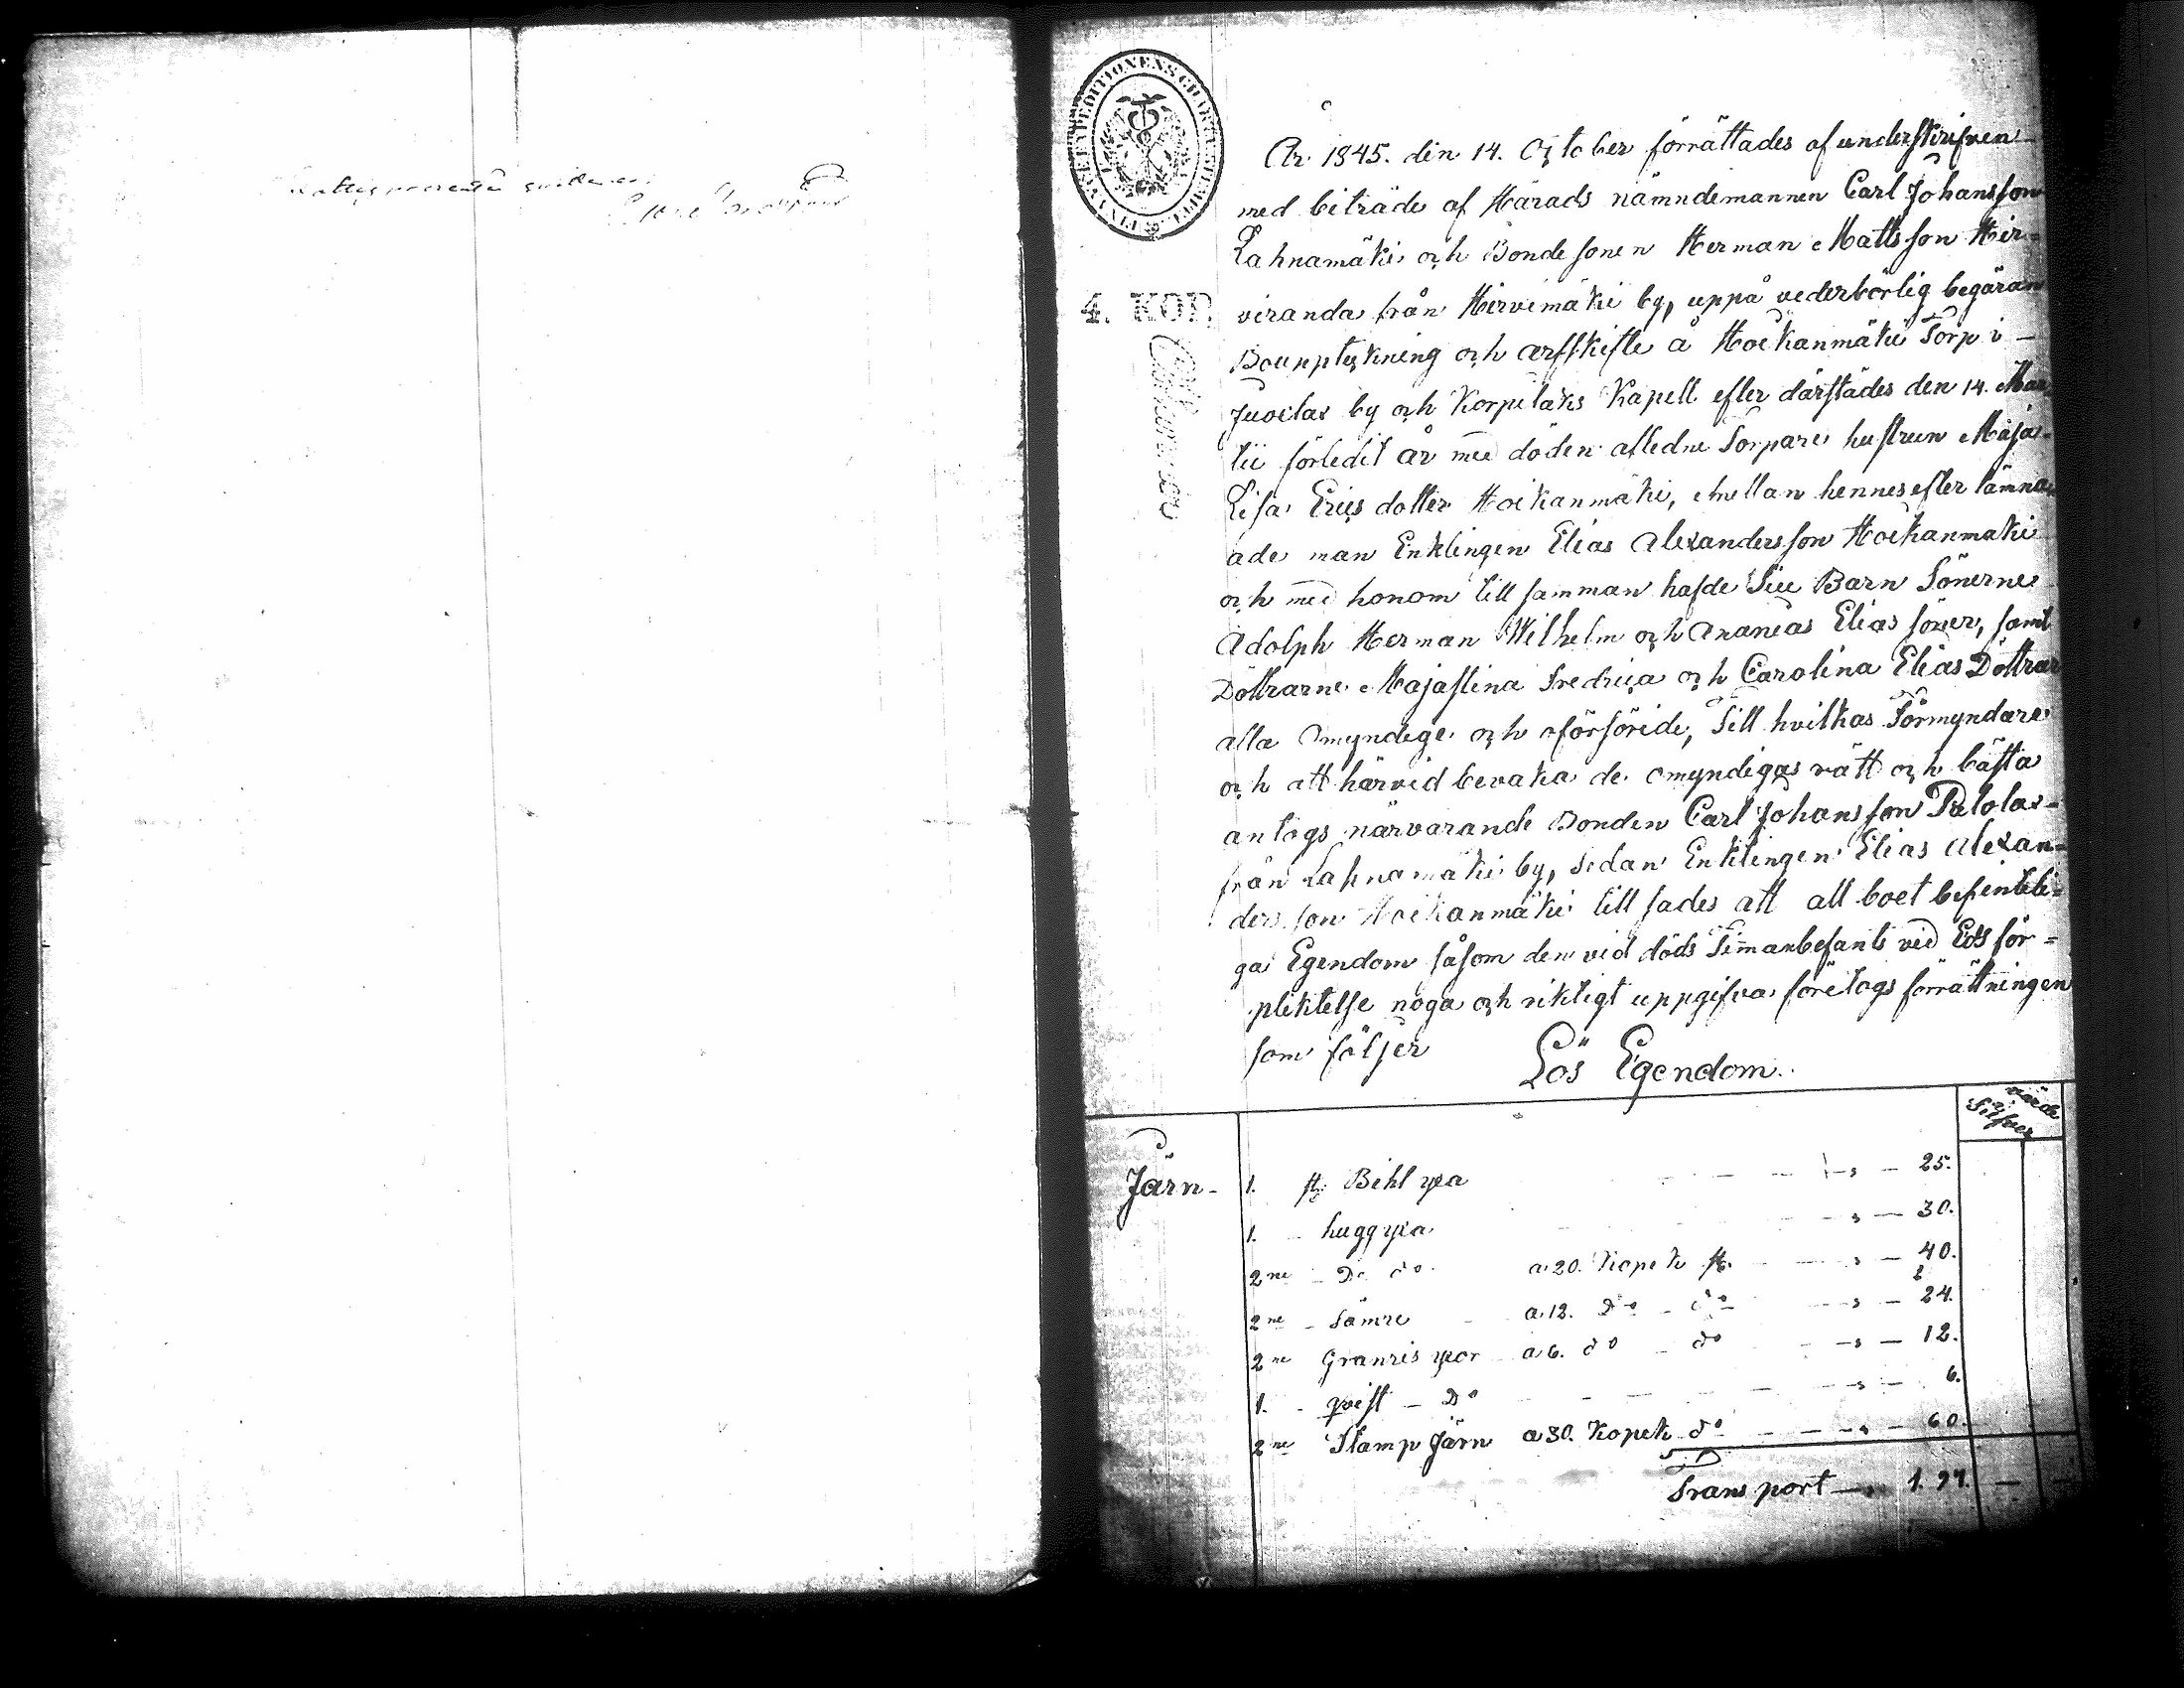 FINANCE EXPEDITIONENS CHARTÆ
4. KOP.
År 1845. den 14. October förrättades af underskrifven
med biträde af Härads nämndemannen Carl Johansson
Lahnamäki och Bondesonen Herman Mattsson Hir=
viranda från Hirvimäki by, uppå vederbörlig begäran
Bouppteckning och arfskifte å Hoikanmäki Torp i
Juocilax by och Korpilaks Kapell efter därstädes den 14. Mar
tii förledit år med döden afledne Torpare hustrun Maja
Lisa Erics dotter Hoikanmäki, Emellan hennes efter lämna
ade man Enklingen Elias Alexandersson Hoikanmäki
och med honom till samman hafde Siu Barn Sönerne
Adolph Herman Wilhelm och Ananias Elias söner, samt
Döttrarne Majastina Fredrica och Carolina Elias Döttrar
alla Omyndige och oförsöride, Till hvilkas Förmyndare
och att härvid bevaka de omyndigas rätt och bästa
antogs närvarande Bonden Carl Johansson Palola
från Lahnamäki by, sedan Enklingen Elias Alexan=
dersson Hoikanmäki till sades att all boet befintli=
ga Egendom såsom den vid döds Timan befants vid Eds för=
pliktelse noga och riktigt uppgifva företogs förrättningen
som följer
Lös Egendom.
värde
Silfver
Järn - 1. st. Bihl yxa - - - 25.
1. - hugg yxa - - - 30.
2ne - Do do a 20. Kopek st. - - - 40.
2ne - Sämre - a 12. Do - do - - 24.
2ne Granris yxor a 6. do - do - - 12.
1. - qvist - Do - - - 6.
2ne Stamp Järn a 30. Kopek do - - - 60.
Transport - 1. 97. - -